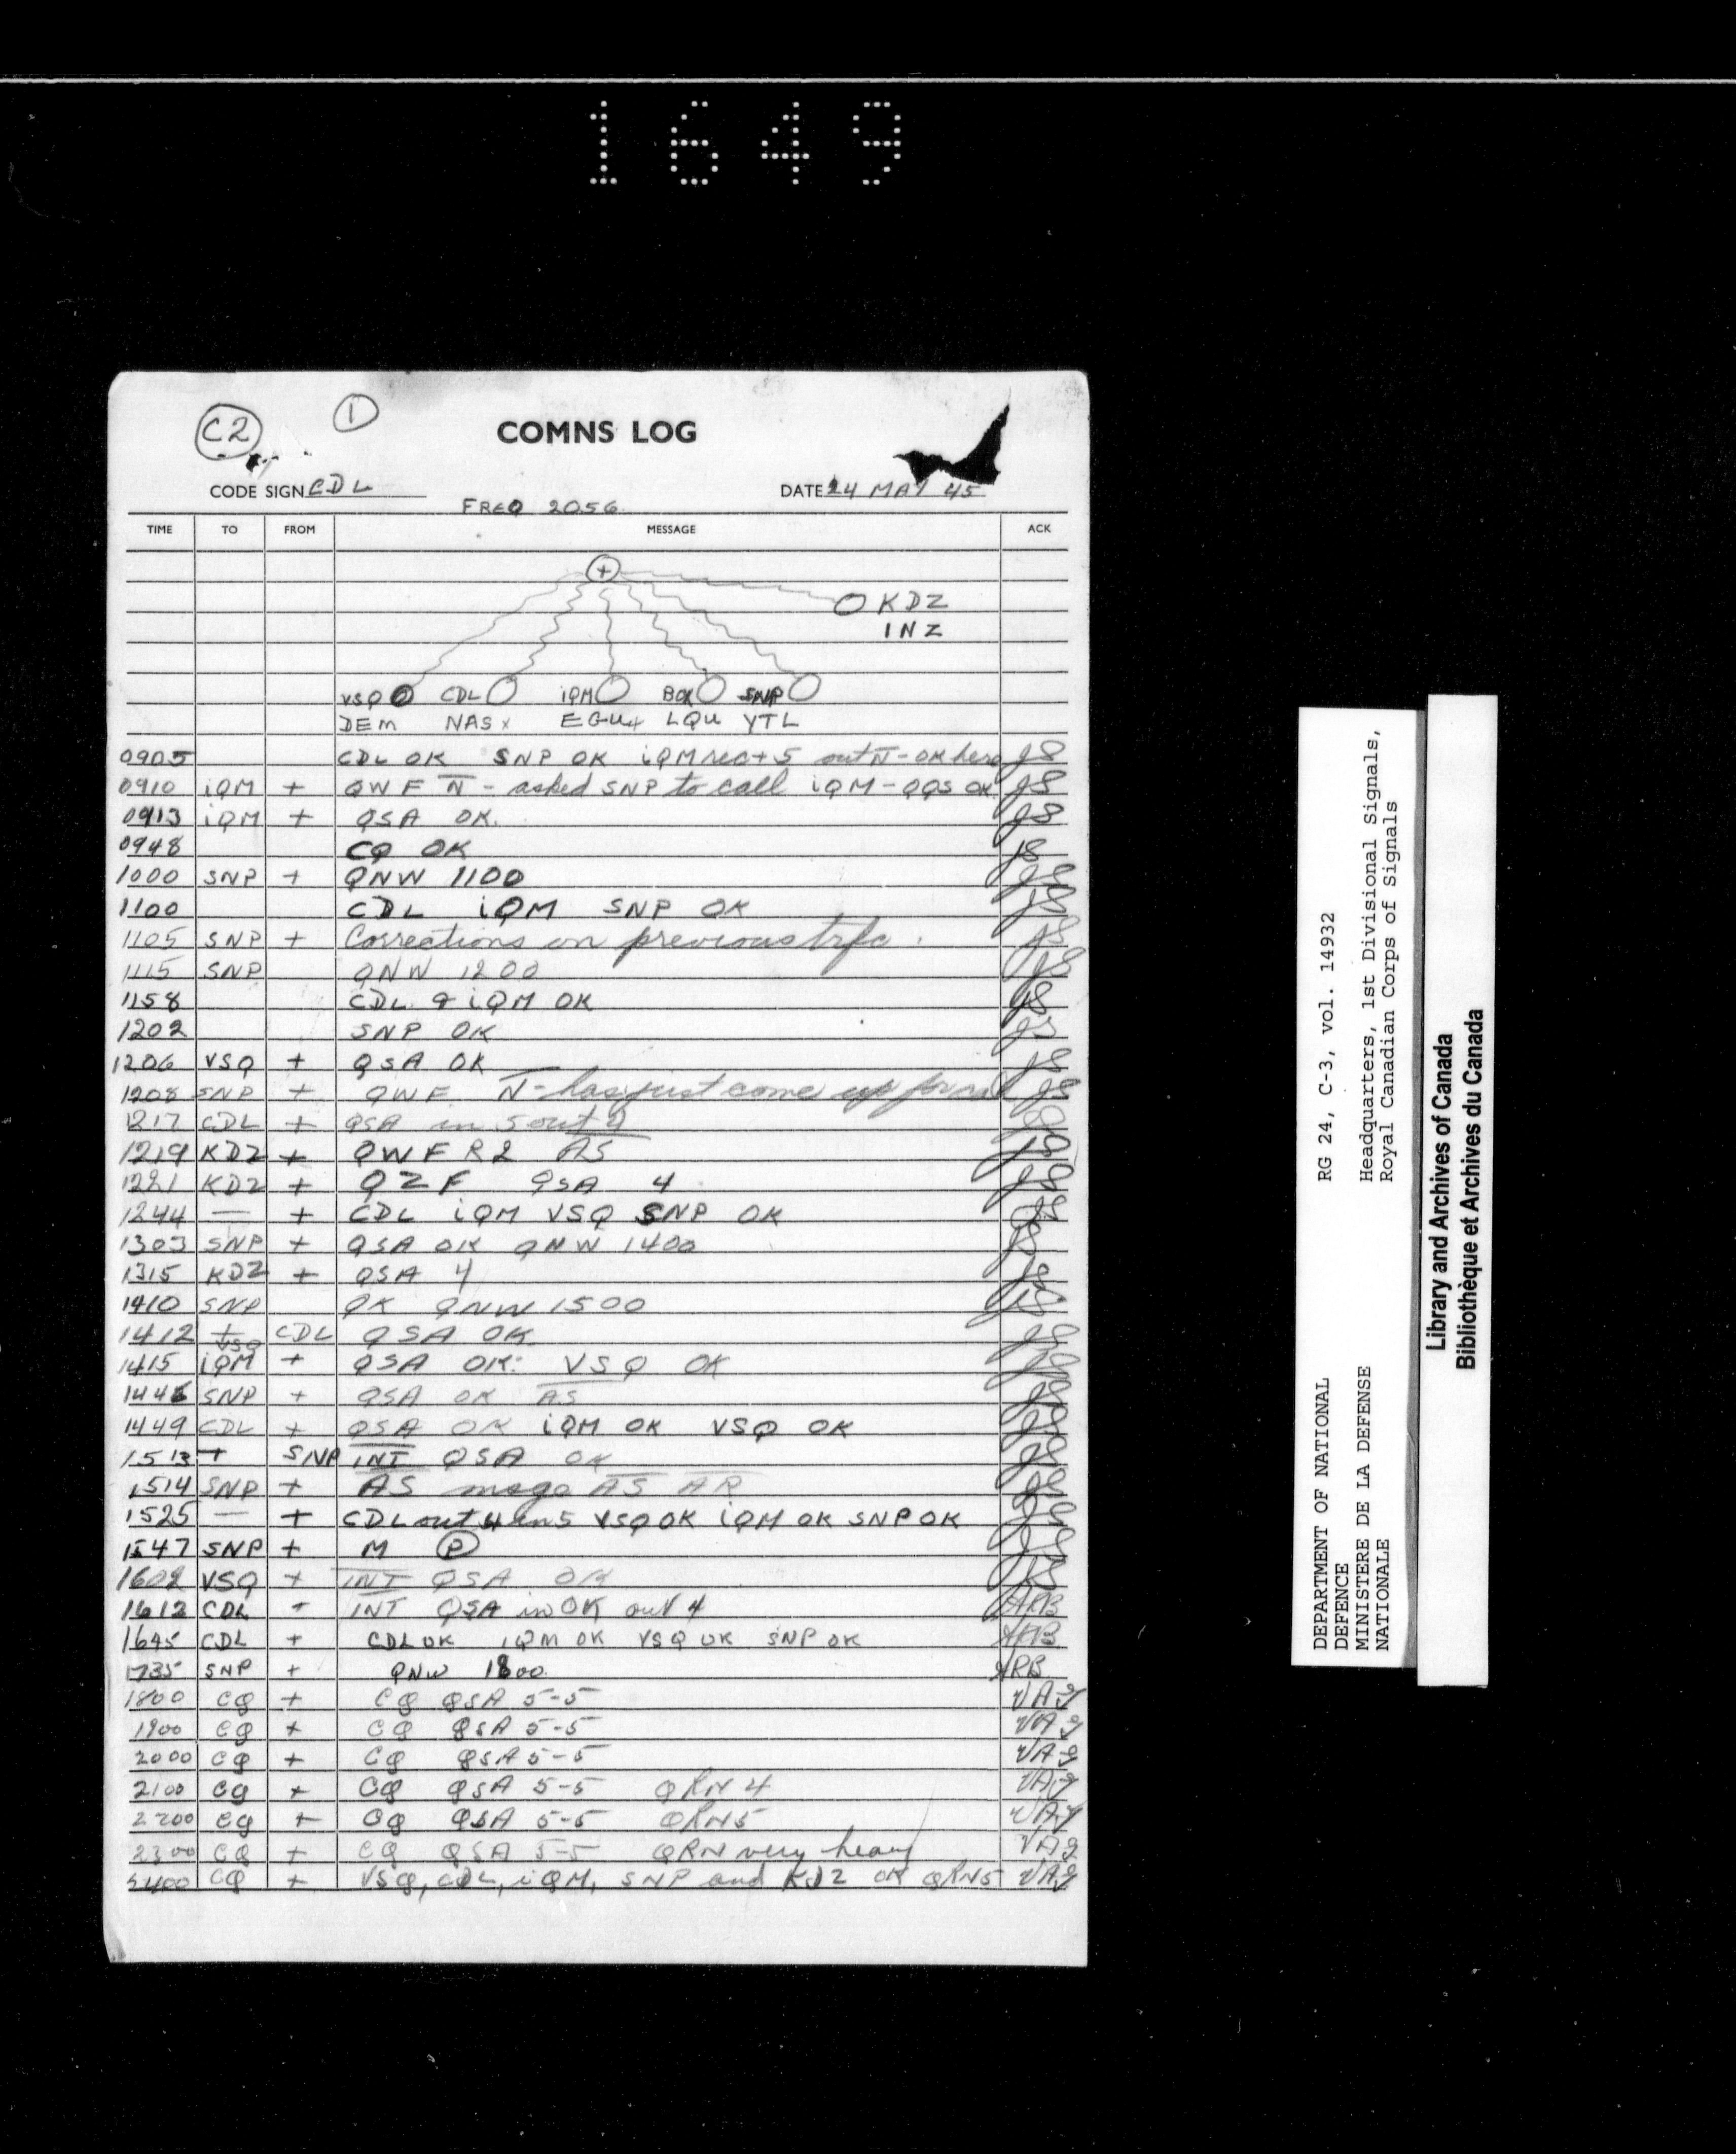 1649
C2 1
COMNS LOG
CODE SIGN CDL DATE 24 MAY 45
FREQ 2056
TIME TO FROM MESSAGE ACK
+
KDZ
INZ
VSQ CDL iQM BOX SNP
DEM NASx EGU+ LQU YTL
0905 CDL OK SNP OK iQM rec + 5 out N - OK here JS
0910 iQM + QWF N - asked SNP to call iQM - QQS OK. JS
0913 iQM + QSA OK. JS
0948 CQ OK JS
1000 SNP + QNW 1100 JS
1100 CDL iQM SNP OK JS
1105 SNP + Corrections on previous trfc. JS
1115 SNP QNW 1200 JS
1158 CDL & iQM OK JS
1202 SNP OK JS
1206 VSQ + QSA OK JS
1208 SNP + QWF N - has just come up for JS
1217 CDL + QSA in 5 out 4 JS
1219 KDZ + QWF R2 AS JS
1221 KDZ + QZF QSA 4 JS
1244 — + CDL iQM VSQ SNP OK JS
1303 SNP + QSA OK QNW 1400 JS
1315 KDZ + QSA 4 JS
1410 SNP OK QNW 1500 JS
1412 + CDL QSA OK. JS
1415 VSQ iQM + QSA OK: VSQ OK JS
1446 SNP + QSA OK AS JS
1449 CDL + QSA OK iQM OK VSQ OK JS
1513 + SNP INT QSA OK JS
1514 SNP + AS msgo AS AR JS
1525 — + CDL out 4 in 5 VSQ OK iQM OK SNP OK JS
1547 SNP + M P JS
1602 VSQ + INT QSA OK JS
1612 CDL + INT QSA in OK out 4 ARB
1645 CDL + CDL OK iQM OK VSQ OK SNP OK ARB
1735 SNP + QNW 1800. ARB
1800 CQ + CQ QSA 5-5 VAG
1900 CQ + CQ QSA 5-5 VAG
2000 CQ + CQ QSA 5-5 VAG
2100 CQ + CQ QSA 5-5 QRN 4 VAG
2200 CQ + CQ QSA 5-5 QRN5 VAG
2300 CQ + CQ QSA 5-5 QRN very heavy VAG
2400 CQ + VSQ, CDL, iQM, SNP and KDZ OK QRN5 VAG
DEPARTMENT OF NATIONAL
DEFENCE
MINISTERE DE LA DEFENSE
NATIONALE
RG 24, C-3, vol. 14932
Headquarters, 1st Divisional Signals,
Royal Canadian Corps of Signals
Library and Archives of Canada
Bibliothèque et Archives du Canada